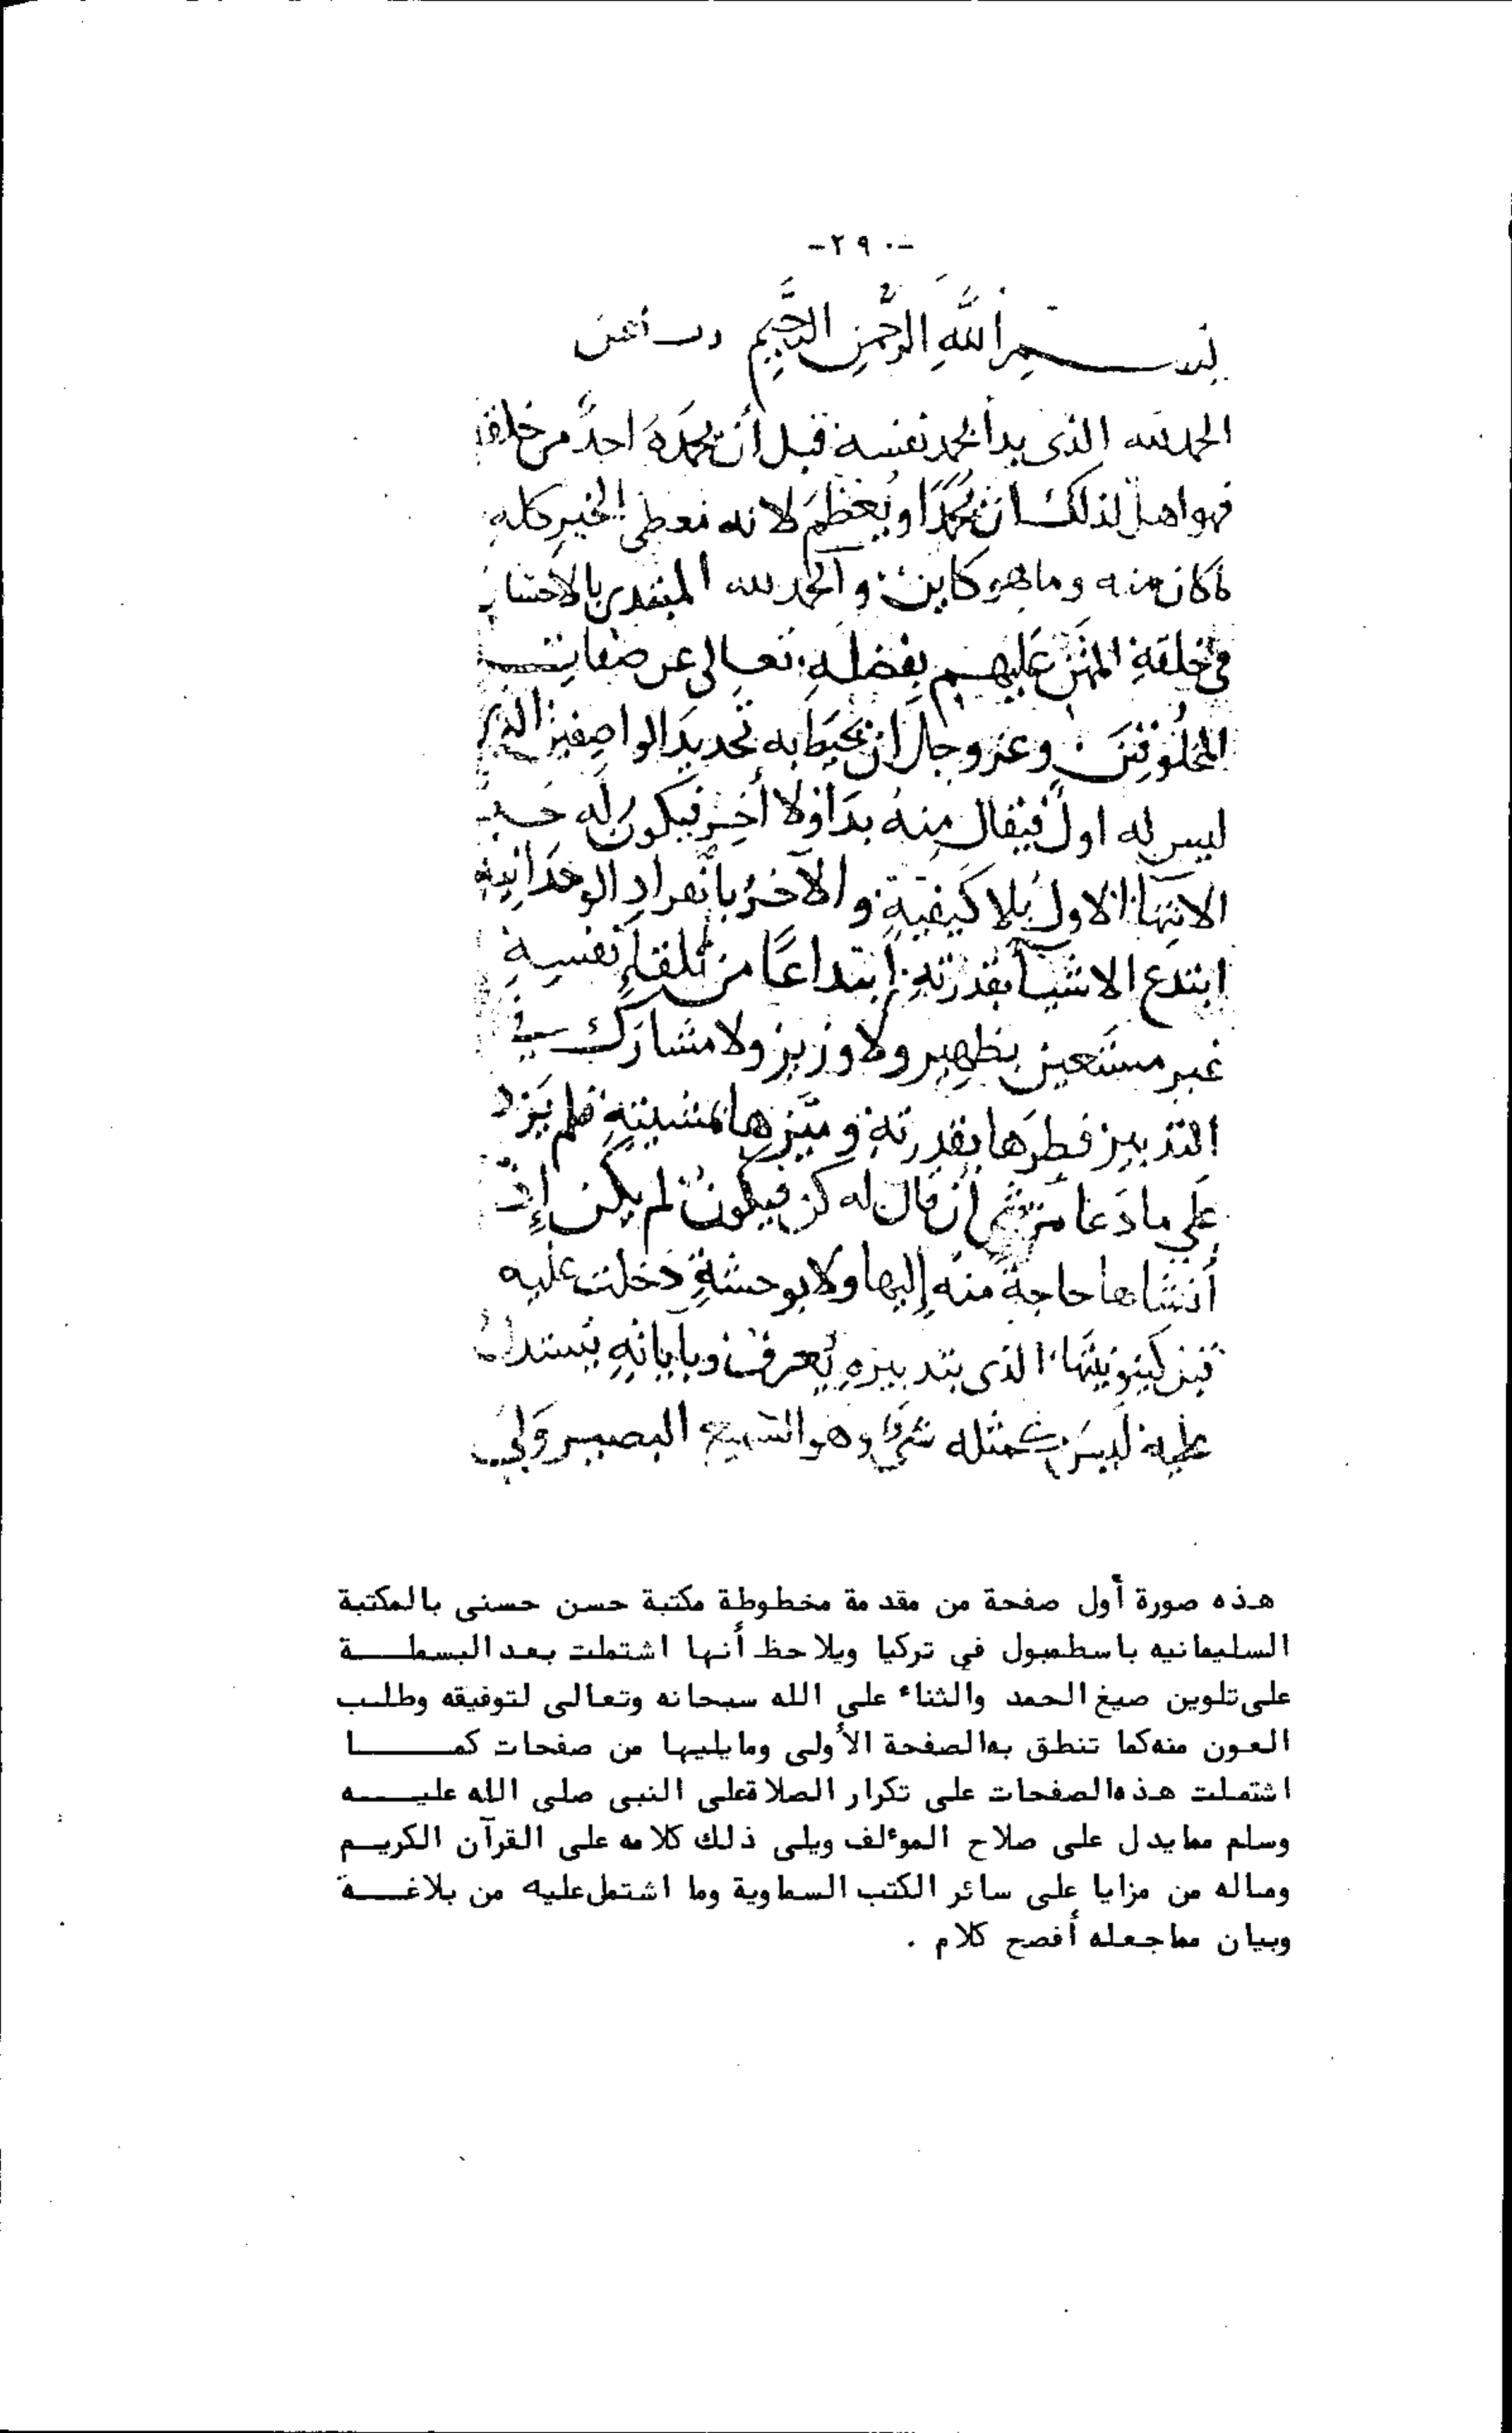 -٢٩٠-
بِسم اللَّهِ الرَّحمنِ الرَّحِيمِ رب أعن
الحمد لله الذى بدأ بحمد نفسه قبل أن يحمدَهُ احدٌ من خلقه
فهو اهل لذلك ان يُحمدَ او يُعظمَ لانه معطى الخير كله
ما كان منه وما هو كاين والحمد لله المبتدى بالاحسان
فى خلقه المنن عليهم بفضله تعالى عن صفات
المخلوقين وعز وجل ان يحيط به تحديد الواصفين الذى
ليس له اول فيقال منه بدا ولا أخِر فيكون له حد
الانتها الاول بلا كيفية والآخر بانفراد الوحدانية
ابتدع الاشيآ بقدرته إبتداعًا من تلقاء نفسه
غير مستعين بظهير ولا وزير ولا مشارك في
التدبير فطرها بقدرته وميزها بمشيته فلم يزد
على ما دعا من شى أن قال له كن فيكون لم يكن إذ
أنشاها حاجة منه إليها ولا بوحشةٍ دخلت عليه
كينونيتها الذى بتدبيره يُعرف وباياته يستدل
عليه ليس كمثله شىء وهو السميع البصير
هذه صورة أول صفحة من مقدمة مخطوطة مكتبة حسن حسنى بالمكتبة
السليمانيه باسطمبول في تركيا ويلاحظ أنها اشتملت بعد البسملة
على تلوين صيغ الحمد والثناء على الله سبحانه وتعالى لتوفيقه وطلب
العون منه كما تنطق به الصفحة الأولى وما يليها من صفحات كما
اشتملت هذه الصفحات على تكرار الصلاة على النبى صلى الله عليه
وسلم مما يدل على صلاح المؤلف ويلى ذلك كلامه على القرآن الكريم
وماله من مزايا على سائر الكتب السماوية وما اشتمل عليه من بلاغة
وبيان مما جعله أفصح كلام .